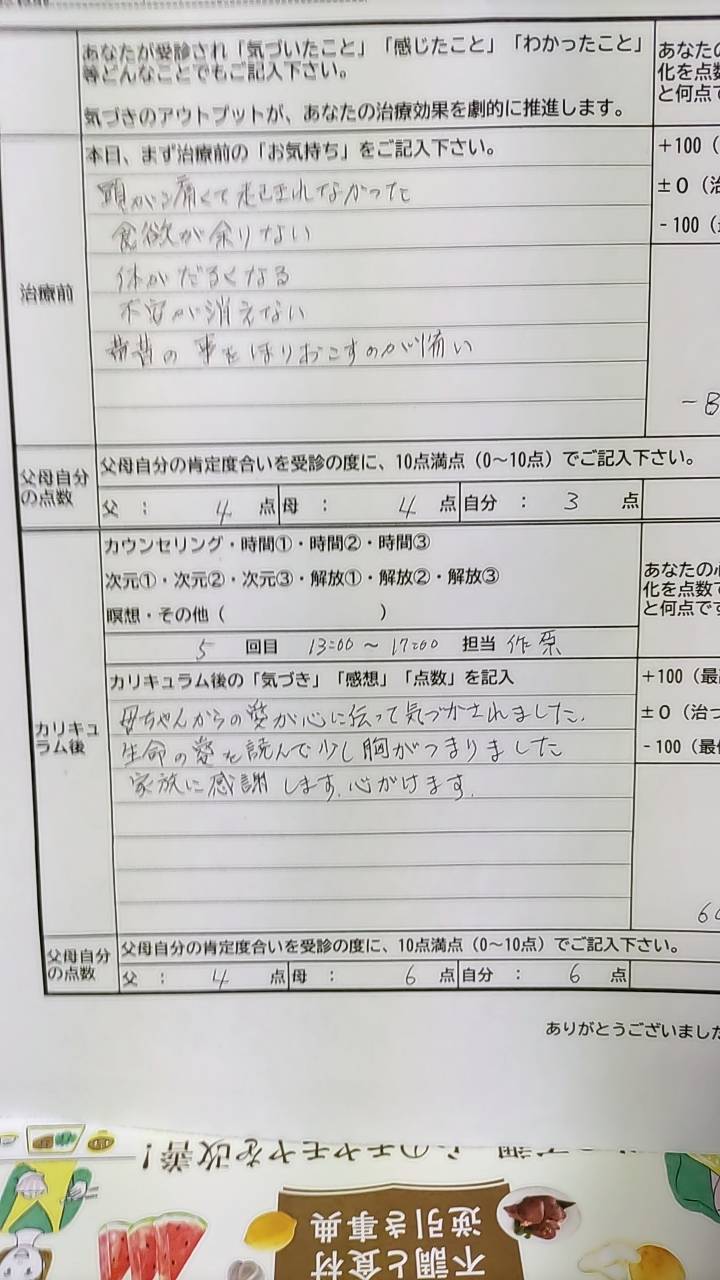 あなたが受診され「気づいたこと」「感じたこと」「わかったこと」
等どんなことでもご記入下さい。
気づきのアウトプットが、あなたの治療効果を劇的に推進します。
あなたの
化を点数
と何点で
治療前
本日、まず治療前の「お気持ち」をご記入下さい。
頭がが痛くて起きれなかった
食欲が余りない
体がだるくなる
不安が消えない
昔の事をほりおこすのが怖い
+100（
±0（治
-100（
-8
父母自分
の点数
父母自分の肯定度合いを受診の度に、10点満点（0～10点）でご記入下さい。
父 ： 4 点 母 ： 4 点 自分 ： 3 点
カリキュ
ラム後
カウンセリング・時間①・時間②・時間③
次元①・次元②・次元③・解放①・解放②・解放③
瞑想・その他（ ）
5 回目 13:00 ～ 17:00 担当 作原
あなたの心
化を点数で
と何点です
カリキュラム後の「気づき」「感想」「点数」を記入
母ちゃんからの愛が心に伝って気づかされました.
生命の愛を読んで少し胸がつまりました
家族に感謝します.心がけます.
+100（最
±0（治っ
-100（最
60
父母自分
の点数
父母自分の肯定度合いを受診の度に、10点満点（0～10点）でご記入下さい。
父 ： 4 点 母 ： 6 点 自分 ： 6 点
ありがとうございました
のモヤモヤを改善！
不調と食材
逆引き事典